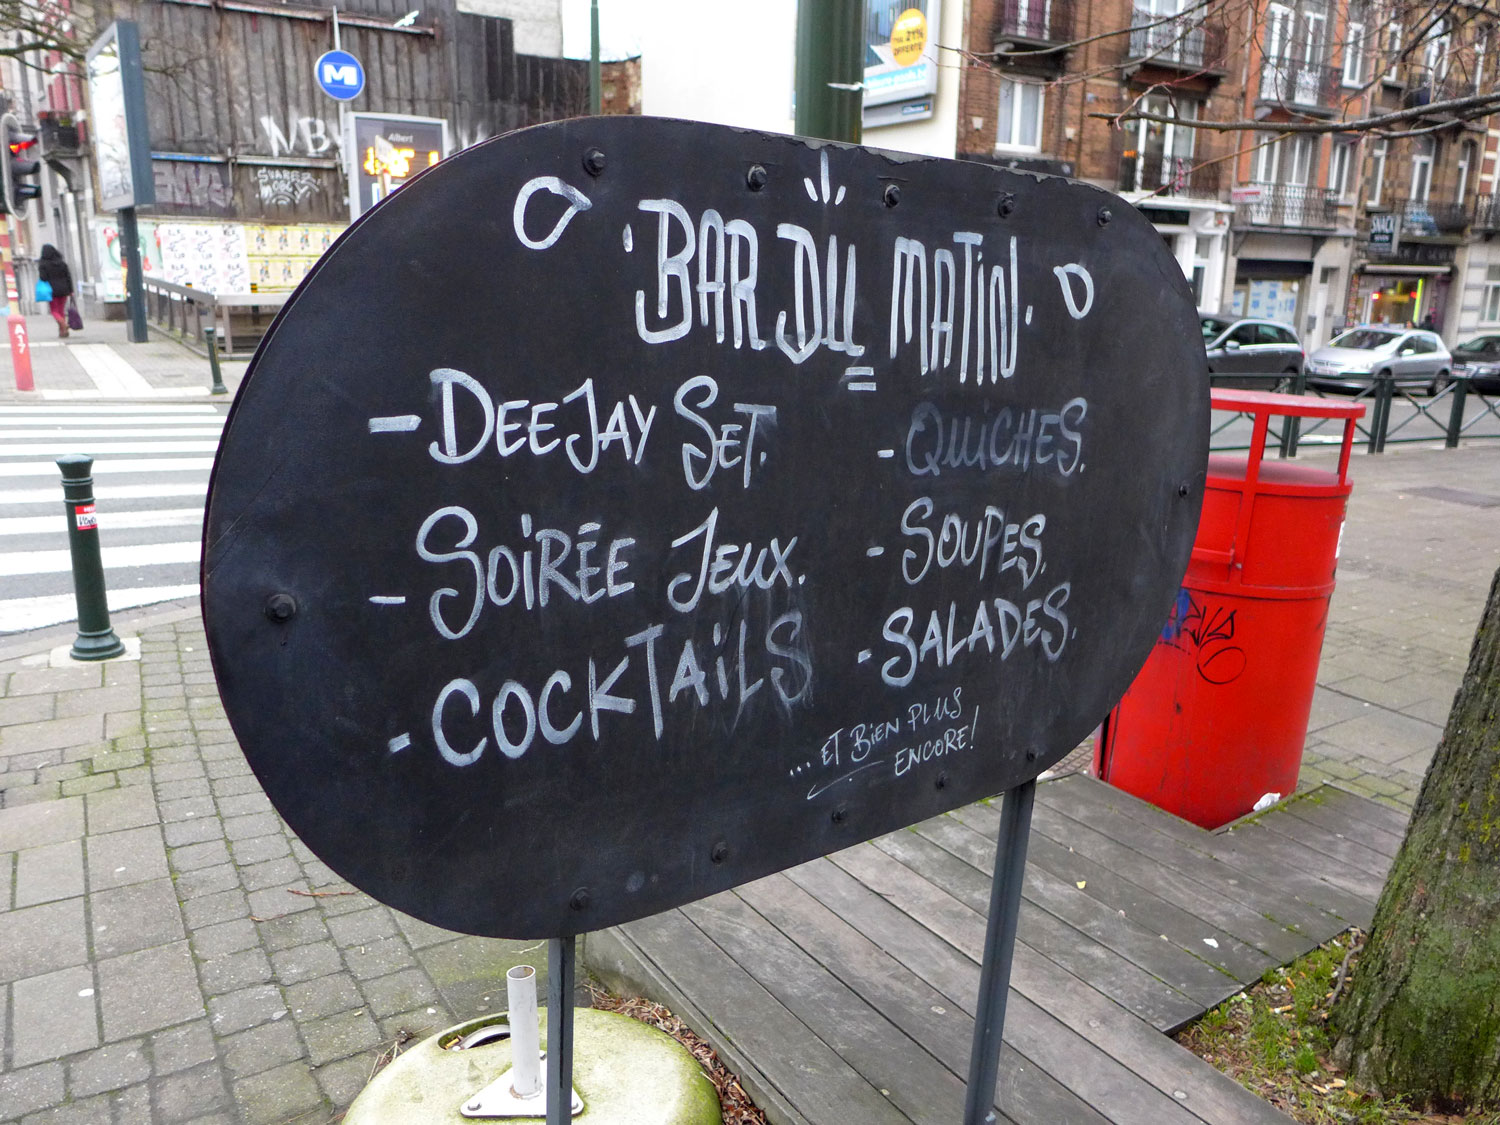 BAR DU MATIN
- DEEJAY SET.
- SOIRÉE JEUX.
- COCKTAILS
- QUICHES.
- SOUPES.
- SALADES.
... ET BIEN PLUS
ENCORE!
M
Albert
21%
OFFERTE
SNACK
A
17